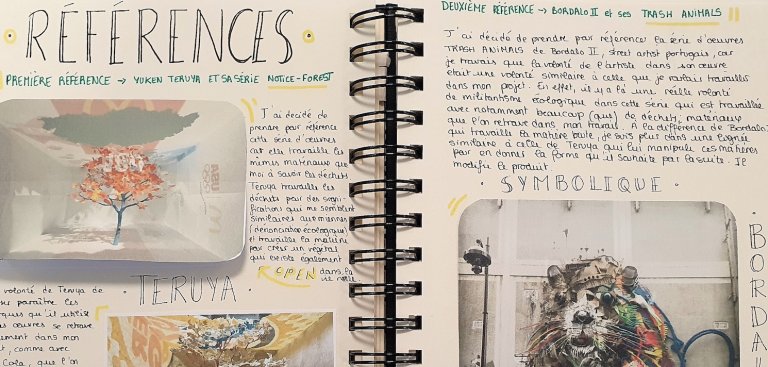 RÉFÉRENCES
PREMIÈRE RÉFÉRENCE → YUKEN TERUYA ET SA SÉRIE NOTICE-FOREST
J'ai décidé de
prendre pour référence
cette série d'œuvres
car elle travaille les
mêmes matériaux que
moi à savoir les déchets
Teruya travaille les
déchets pour des signi-
fications qui me semblent
similaires aux miennes
(dénonciation écologique)
et travaille la matière
pour créer un végétal
qui existe également
dans la
vie réelle
OPEN
TERUYA
volonté de Teruya de
paraître les
qu'il utilise
œuvres se retrouve
dans mon
, comme avec
Cola, que l'on
DEUXIÈME RÉFÉRENCE → BORDALO II et ses TRASH ANIMALS
J'ai décidé de prendre pour référence la série d'œuvres
TRASH ANIMALS de Bordalo II, street artist portugais, car
je trouvais que la volonté de l'artiste dans son œuvre
était une volonté similaire à celle que je voulais travailler
dans mon projet. En effet, il y a là une réelle volonté
de militantisme écologique dans cette série qui est travaillée
avec notamment beaucoup (que) de déchets, matériaux
que l'on retrouve dans mon travail. A la différence de Bordalo
qui travaille la matière brute, je suis plus dans une lignée
similaire à celle de Teruya qui lui manipule ces matières
pour en donner la forme qu'il souhaite par la suite. Il
modifie le produit.
SYMBOLIQUE
BORDAL